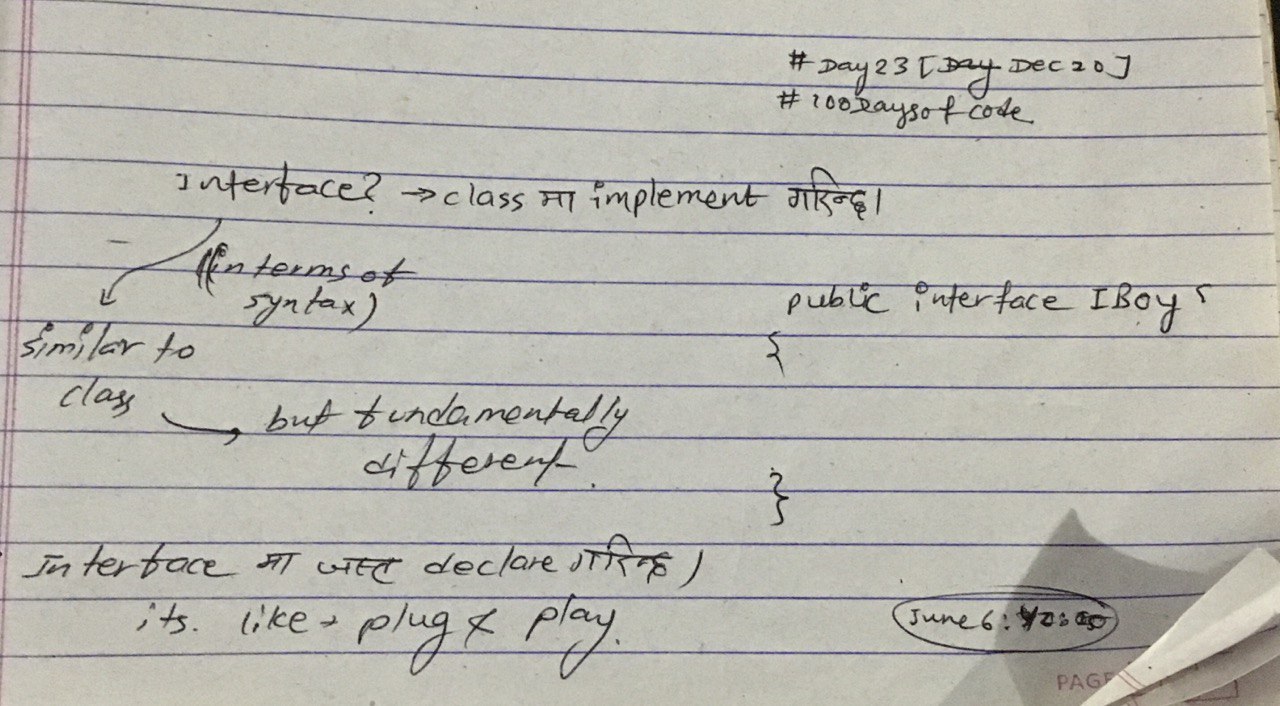 # Day 23 [Day Dec 20]
# 100Daysof code
Interface? → class मा implement गरिन्छ।
(in terms of
syntax)
similar to
class
but fundamentally
different.
public interface IBoy
{
}
Interface मा जस्ट declare गरिन्छ।
its. like → plug & play.
June 6:
PAGE